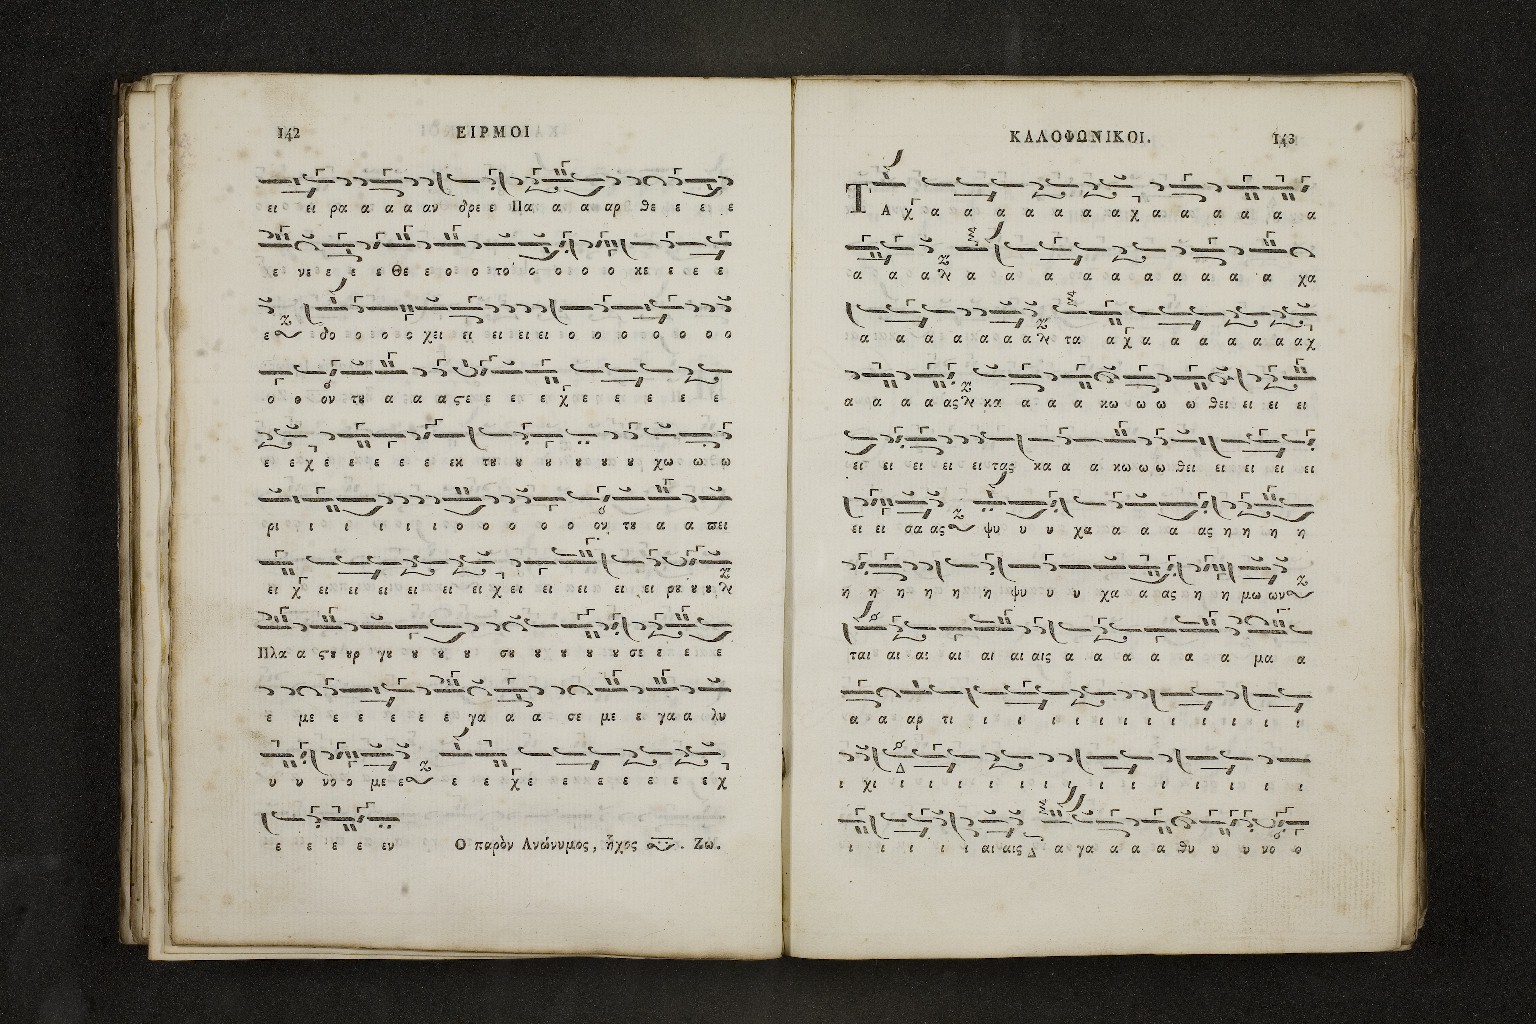 142 ΕΙΡΜΟΙ
ει ει ρα α α α αν δρε ε Πα α α αρ θε ε ε ε
ε νε ε ε ε Θε ε ο ο το ο ο ο ο κε ε ε ε
ε δο ο ο ο ο χει ει ει ει ει ο ο ο ο ο ο ο
ο θ ον τȣ α α α ςε ε ε ε χ ε ε ε ε ε ε
ε ε χ ε ε ε ε ε εκ τȣ ȣ ȣ ȣ ȣ ȣ χω ω ω
ρι ι ι ι ι ι ο ο ο ο ο ον τȣ α α πει
ει χ ει ει ει ει ει ει χ ει ει ει ει ει ρȣ ȣ ȣ
Πλα α ςȣ ȣρ γȣ ȣ ȣ ȣ σȣ ȣ ȣ ȣ ȣ σε ε ε ε
ε με ε ε ε ε ε γα α α σε με ε γα α λυ
υ υ νο ο με ε ε ε χ ε ε ε ε ε ε ε χ
ε ε ε ε εν Ο παρὸν Ανώνυμος, ἦχος . Ζω.
ΚΑΛΟΦΩΝΙΚΟΙ. 143
ΤΑ χ α α α α α α α χ α α α α α α
α α α α α α α α α α α α α χα
α α α α α α α τα α χ α α α α α α χ
α α α α ας κα α α α κω ω ω ω θει ει ει ει
ει ει ει ει ει τας κα α α κω ω ω θει ει ει ει ει
ει ει σα ας ψυ υ υ χα α α α ας η η η η
η η η η η η ψυ υ υ χα α ας η η μω ων
ται αι αι αι αι αι αις α α α α α α μα α
α α αρ τι ι ι ι ι ι ι ι ι ι ι ι
ι χι ι ι ι ι ι ι ι ι ι ι ι ι
ι ι ι ι αι αις α γα α α α θυ υ υ νο ο